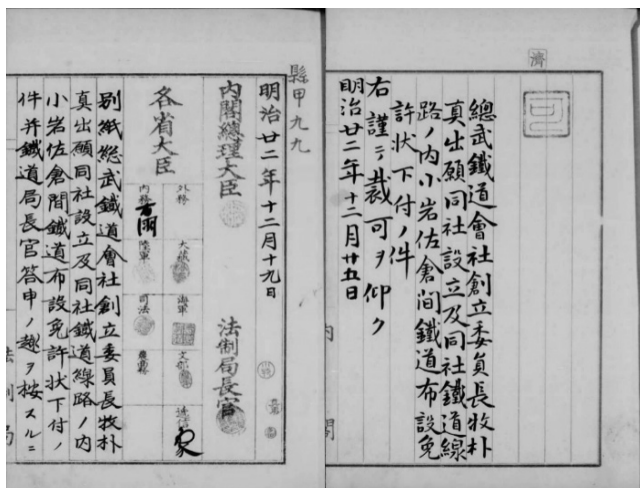 濟
可
總武鐵道會社創立委員長牧朴
真出願同社設立及同社鐵道線
路ノ内小岩佐倉間鐵道布設免
許状下付ノ件
右謹テ裁可ヲ仰ク
明治廿二年十二月廿五日
内閣
縣甲九九
明治廿二年十二月十九日
内閣總理大臣
法制局長官
各省大臣
外務
大蔵
海軍
文部
内務
陸軍
司法
逓信
別紙総武鐵道會社創立委員長牧朴
真出願同社設立及同社鐵道線路ノ内
小岩佐倉間鐵道布設免許状下付ノ
件并鐵道局長官答申ノ趣ヲ按スルニ
法制局